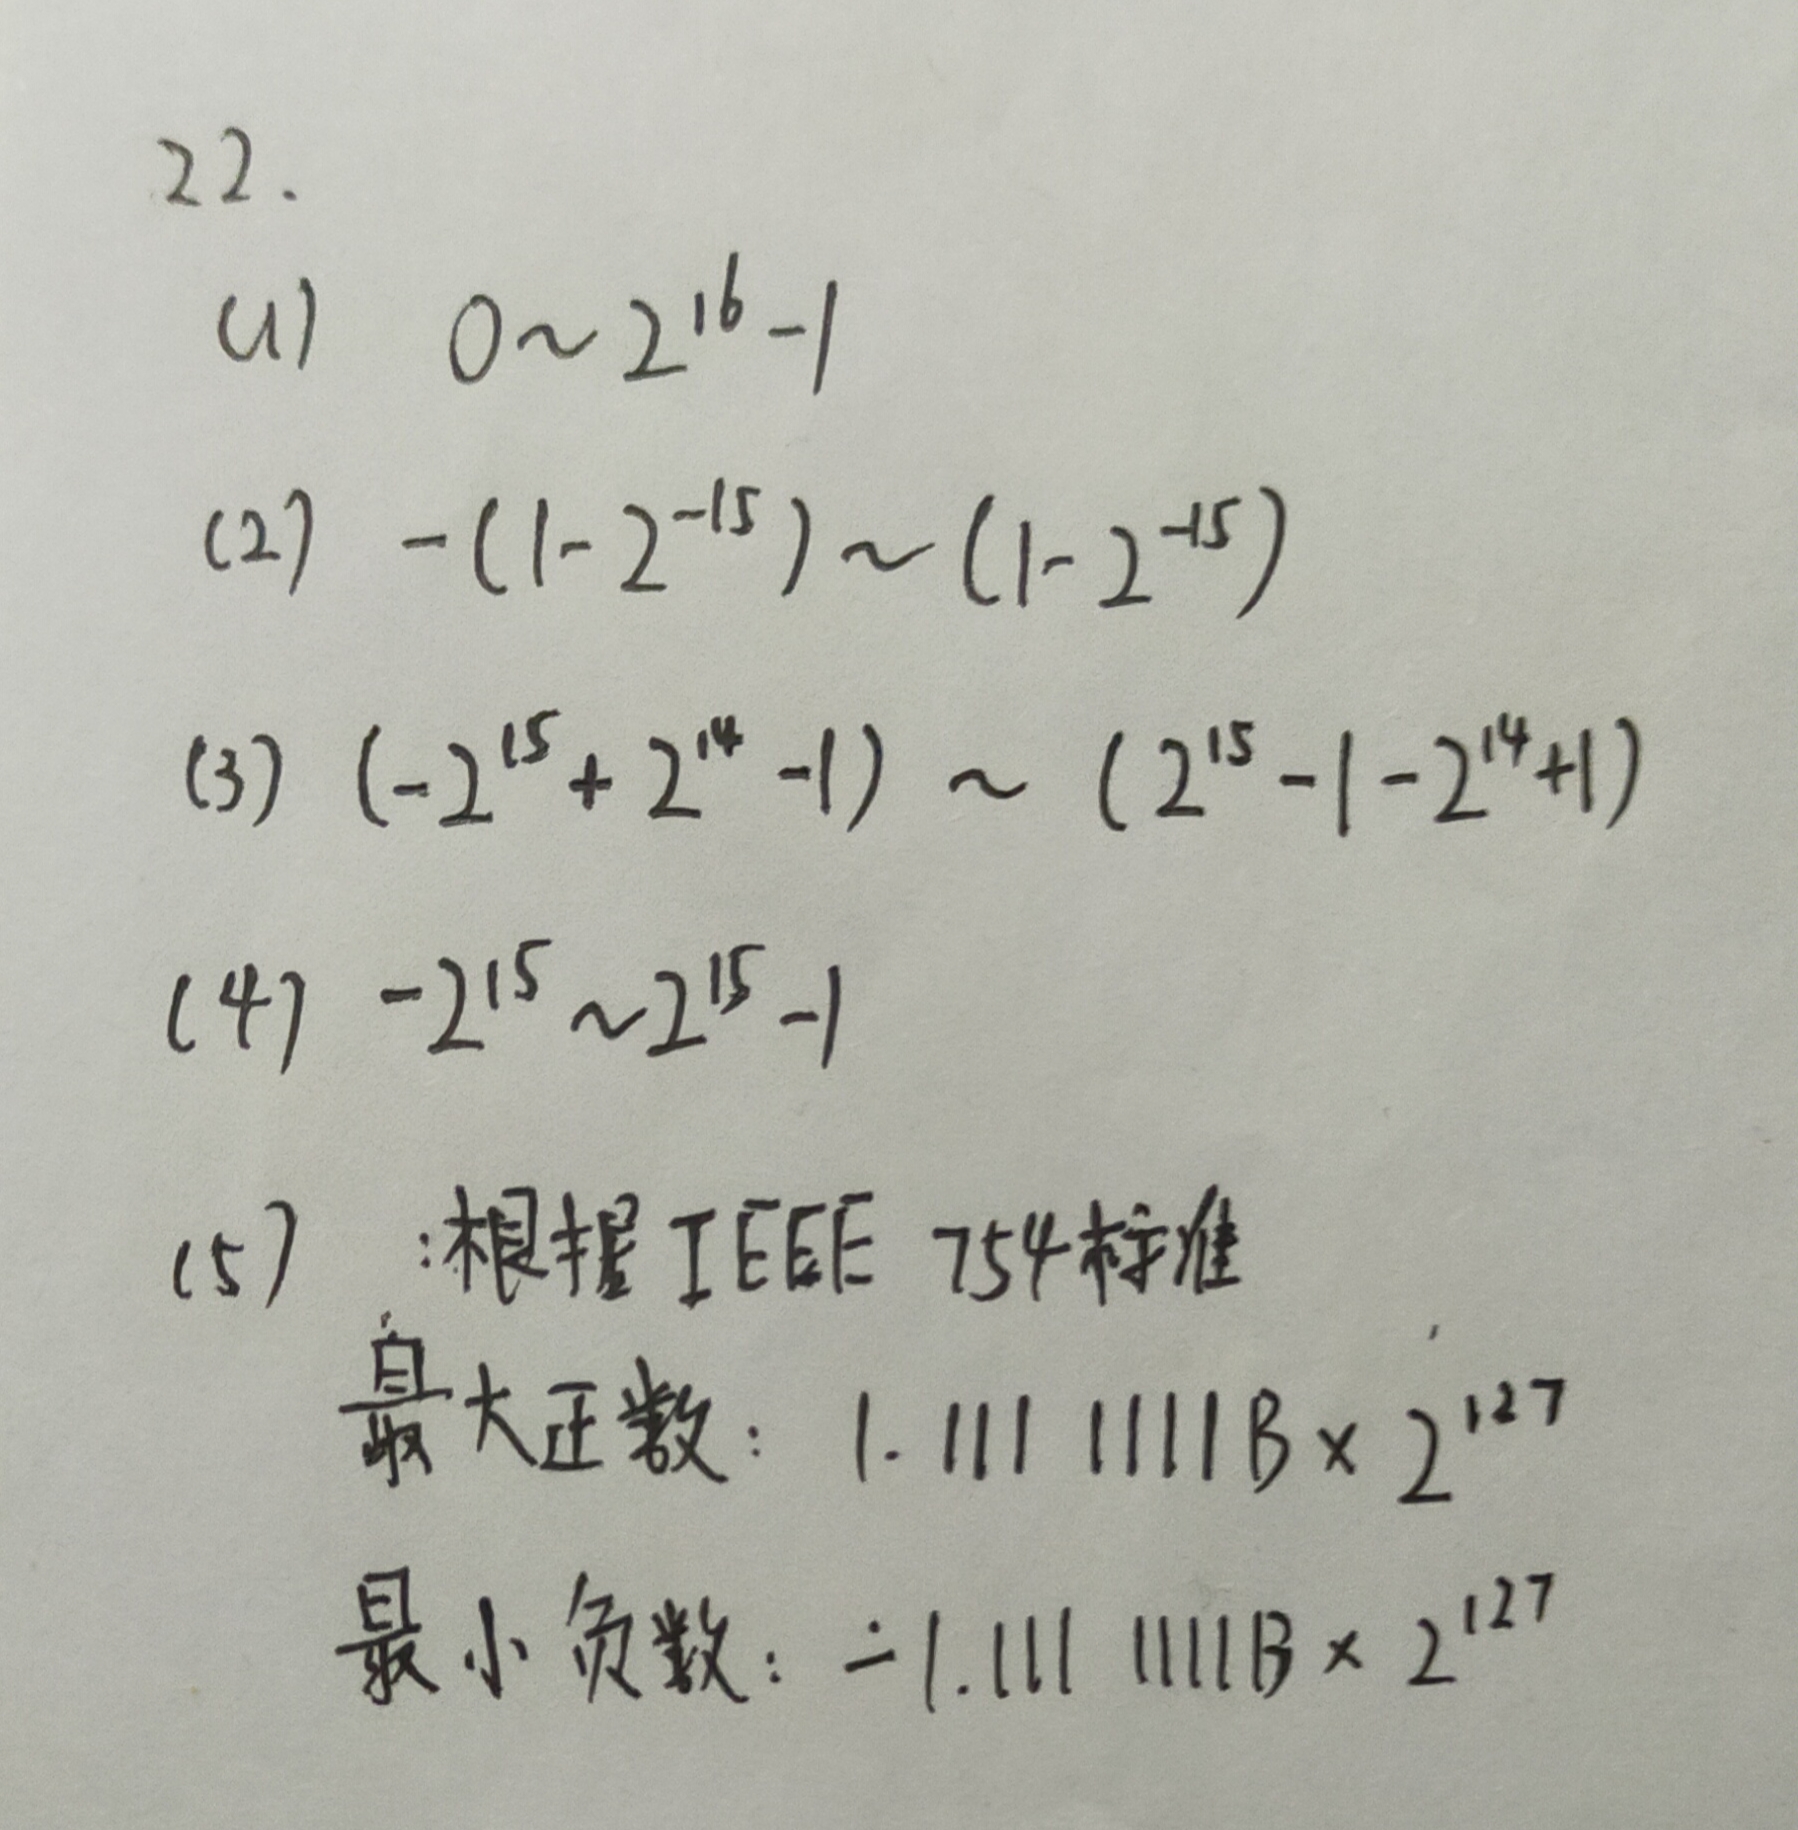 22.
(1) 0~2¹⁶-1
(2) -(1-2⁻¹⁵)~(1-2⁻¹⁵)
(3) (-2¹⁵+2¹⁴-1) ~ (2¹⁵-1-2¹⁴+1)
(4) -2¹⁵~2¹⁵-1
(5) :根据IEEE 754标准
最大正数: 1.111 1111B×2¹²⁷
最小负数: -1.111 1111B×2¹²⁷